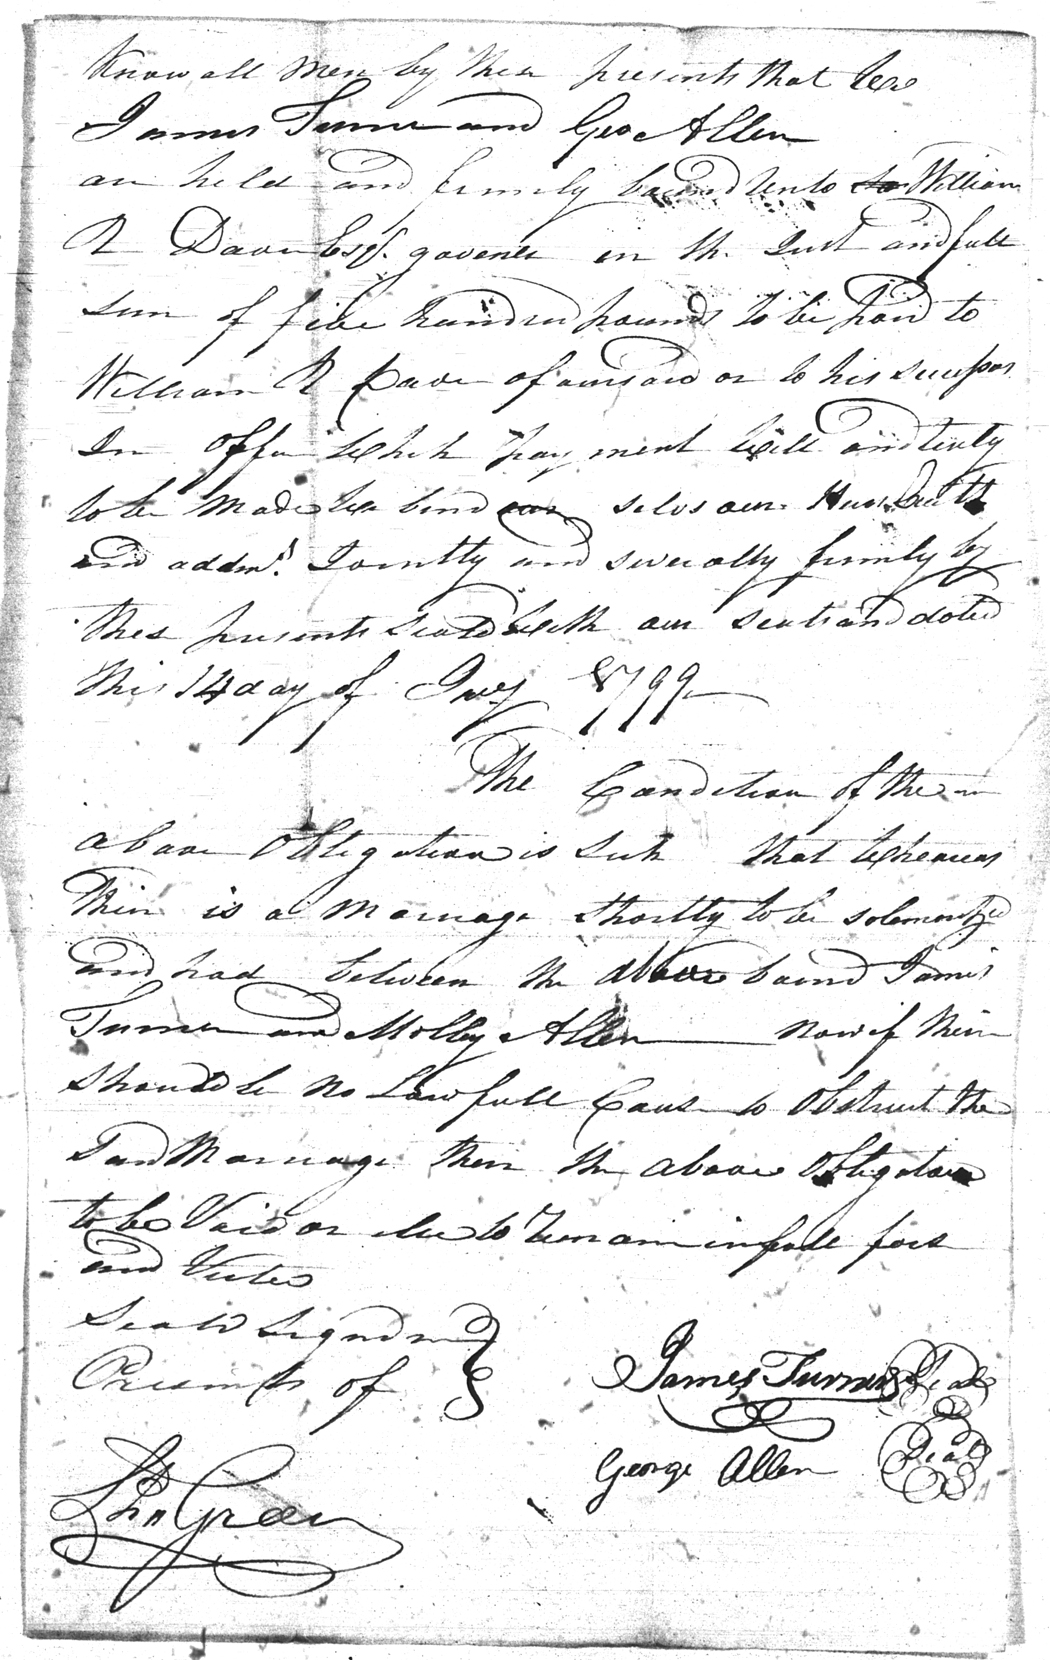 Know all men by these presents that we
James Turner and Geo Allen
are held and firmly bound unto to William
R Davie Esqr. govener in the Just and full
sum of five hundred pounds to be paid to
William R Davie aforesaid or to his successors
In office which payment well and truly
to be made we bind our selvs our Heirs
and addmrs. Jointly and severally firmly by
thes presents seald with our seals and dated
this 14 day of 1799
The Condition of the
above Obligation is such that whereas
their is a marriage shortly to be solemnized
and had between the above bound James
Turner and Molly Allen now if their
should be no Lawfull Cause to obstruct the
said Marriage then the above obligation
to be Void or else to remain in full force
and Vertue
Seald Signd in
Presents of
James Turner Seal
George Allen Seal
Green